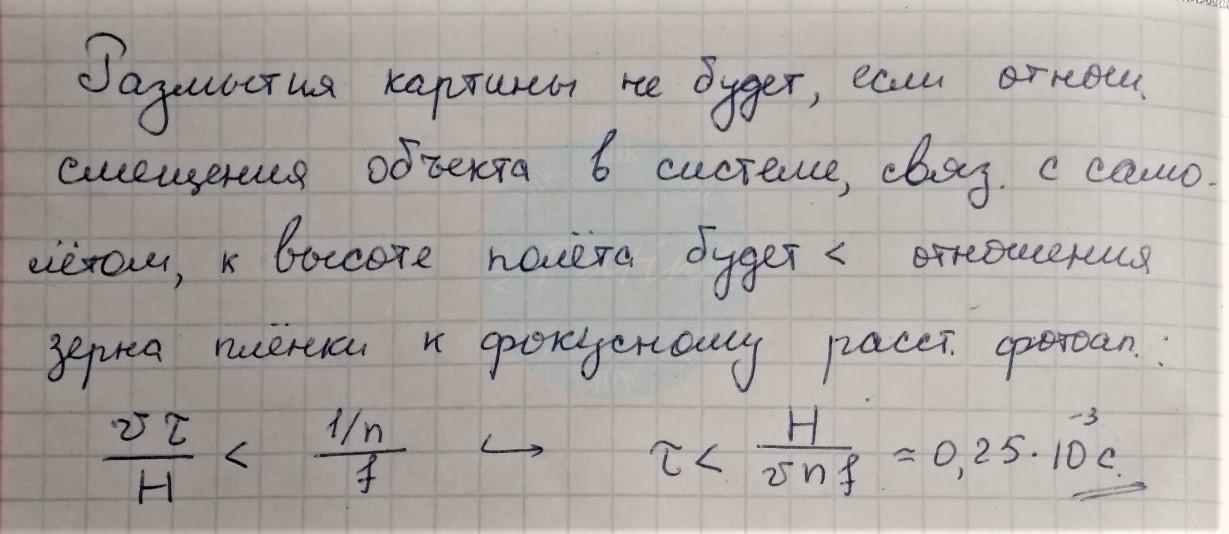 Размытия картины не будет, если относи.
смещения объекта в системе, связ. с само-
лётом, к высоте полёта будет < отношения
зерна плёнки к фокусному расст. фотоап.:
vτ/H < (1/n)/f ↪ τ < H/(vnf) ≈ 0,25·10⁻³ с.